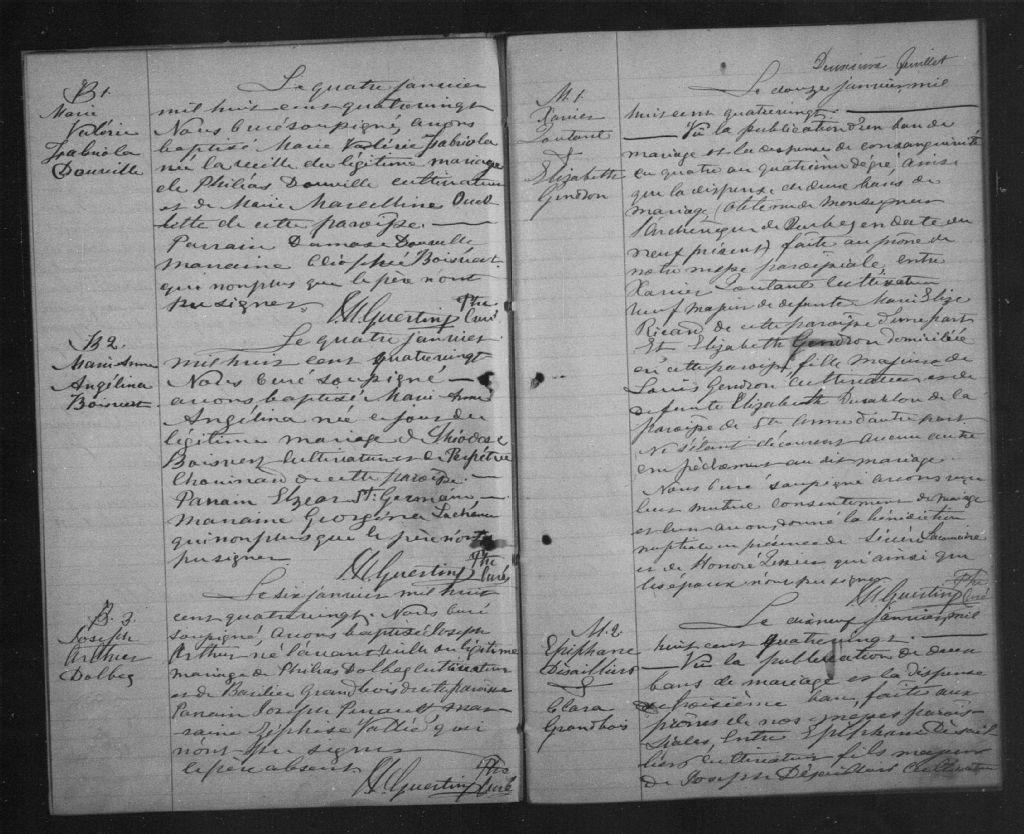 B 1.
Marie
Valérie
Fabiola
Douville
Le quatre janvier
mil huit cent quatrevingt
Nous Curé soussigné, avons
baptisé Marie Valérie Fabiola
née la veille du légitime mariage
de Philias Douville cultivateur
et de Marie Marcelline Ouel
lette de cette paroisse.
Parrain Damase Douville
marraine Cléophée Boisvert
qui non plus que le père n'ont
pu signer
Ptre
Guertin Curé
B 2.
Marie Anne
Angélina
Boisvert
Le quatre janvier
mil huit cent quatrevingt
Nous Curé soussigné
avons baptisé Marie Anne
Angélina née ce jour du
légitime mariage de Théodose
Boisvert Cultivateur et de Perpétue
Chouinard de cette paroisse.
Parrain Elzear St. Germain
marraine Georgina
qui non plus que le père n'ont
pu signer
Ptre
Guertin Curé
B. 3.
Joseph
Arthur
Dolbec
Le six janvier mil huit
cent quatrevingt Nous Curé
soussigné, avons baptisé Joseph
Arthur né l'avant veille du légitime
mariage de Philias Dolbec cultivateur
et de Basilice Grandbois de cette paroisse
Parrain Joseph Perrault mar
raine Vallée qui
n'ont pu signer
le père absent
Ptre
Guertin Curé
Deuxième feuillet
M. 1.
Xavier
Toutant
&
Elizabeth
Gendron
Le douze janvier mil
huit cent quatrevingt
Vu la publication d'un ban de
mariage et la dispense de consanguinité
du quatre au quatrième dégré, ainsi
que la dispense de deux bans de
mariage, (obtenue de Monseigneur
l'Archevêque de Québec en date du
neuf présent) faite au prône de
notre messe paroissiale, entre
Xavier Toutant cultivateur
veuf majeur de defunte Marie Elize
Ricard de cette paroisse d'une part
Et Elizabeth Gendron domiciliée
en cette paroisse, fille majeure de
Louis Gendron Cultivateur et de
defunte Elizabeth de la
paroisse de Ste Anne d'autre part.
Ne s'étant découvert aucun autre
empêchement au dit mariage
Nous Curé soussigné avons reçu
leur mutuel consentement de mariage
et leur avons donné la bénédiction
nuptiale en présence de
et de Honoré Tessier qu'ainsi que
les époux n'ont pu signer
Ptre
Guertin Curé
M. 2.
Epiphane
Désailliers
&
Clara
Grandbois
Le dixneuf janvier mil
huit cent quatrevingt
Vu la publication de deux
bans de mariage et la dispense
de troisième ban, faite aux
prônes de nos messes parois
siales, entre Epiphane Désail
liers cultivateur fils majeur
de Joseph Désailliers Cultivateur